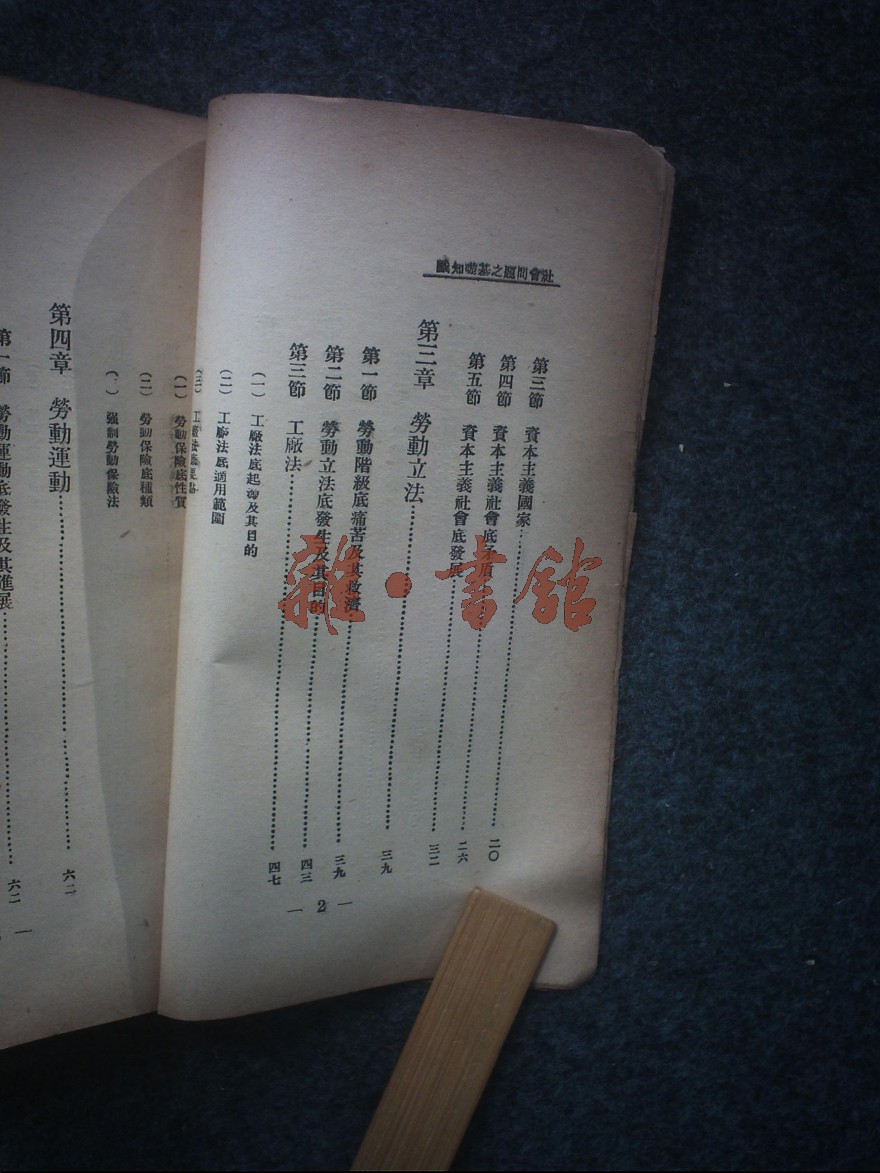 社會問題之基礎知識
第三節 資本主義國家…………二〇
第四節 資本主義社會底矛盾…………二六
第五節 資本主義社會底發展…………三二
第三章 勞動立法…………三九
第一節 勞動階級底痛苦及其救濟…………三九
第二節 勞動立法底發生及其目的…………四三
第三節 工廠法…………四七
(一) 工廠法底起源及其目的
(二) 工廠法底適用範圍
(三) 工廠法底要點
— 2 —
(一) 勞動保險底性質
(二) 勞動保險底種類
(三) 强制勞動保險法
第四章 勞動運動…………六二
第一節 勞動運動底發生及其進展…………六二
雜·書館